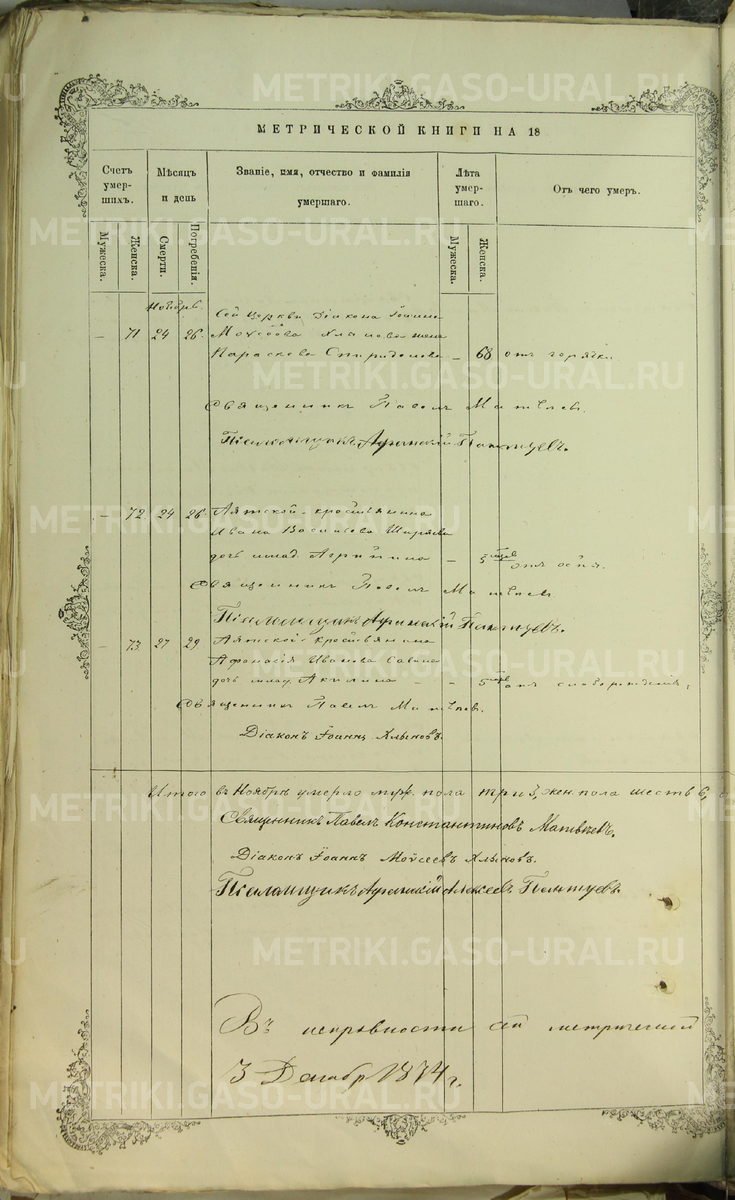 МЕТРИЧЕСКОЙ КНИГИ НА 18
Счетъ умерших
Мѣсяцъ и день
Званіе, имя, отчество и фамилія умершаго.
Лѣта умершаго.
Отъ чего умеръ.
Мужеска.
Женска.
Смерти.
Погребенія.
Мужеска.
Женска.
Ноябрь.
Сей церкви діакона Іоанна
– 71 24 26. Хлынова жена
Параскева Спиридонова – 68 отъ горячки
Священникъ Павелъ Матвѣевъ.
Псаломщикъ Пантуевъ.
– 72 24 26. Аятской крестьянина
Ивана Васильева Ширяева
дочь млад. Агрипина – 5 отъ оспы.
Священникъ Павелъ Матвѣевъ
Псаломщикъ Пантуевъ.
– 73 27 29 Аятской крестьянина
Афанасія Иванова
дочь млад. Акилина – 5 отъ слаборожденія,
Священникъ Павелъ Матвѣевъ.
Діаконъ Іоаннъ Хлыновъ.
Итого въ Ноябрѣ умерло муж. пола три 3, жен. пола шесть 6,
Священникъ Павелъ Константиновъ Матвѣевъ.
Діаконъ Іоаннъ Моѵсеевъ Хлыновъ.
Псаломщикъ Алексеевъ Пантуевъ.
Въ исправности сей метрической
3 Декабр 1874 г.
METRIKI.GASO-URAL.RU